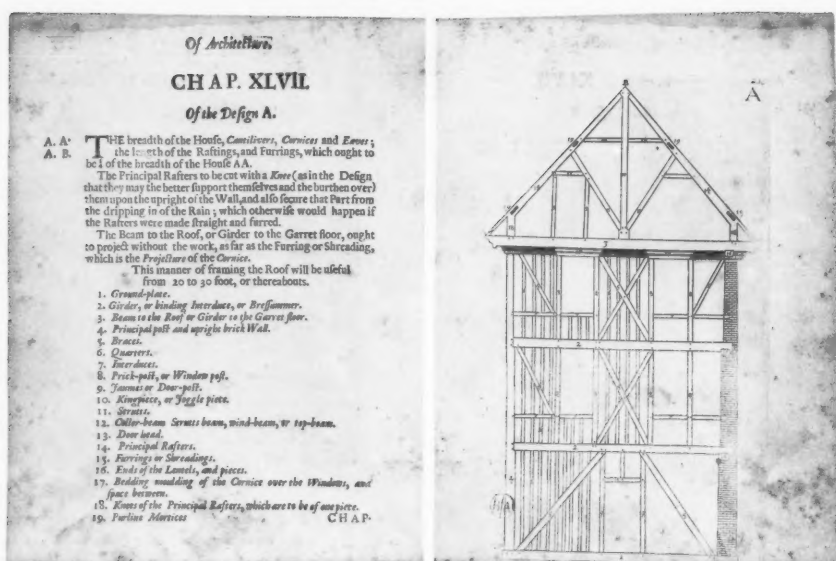 Of Architecture.
CHAP. XLVII.
Of the Design A.
A. A. THE breadth of the House, Cantilivers, Cornices and Eaves;
A. B. the length of the Raftings, and Furrings, which ought to
be of the breadth of the House AA.
The Principal Rafters to be cut with a Knee (as in the Design
that they may the better support themselves and the burthen over)
them upon the upright of the Wall, and also secure that Part from
the dripping in of the Rain; which otherwise would happen if
the Rafters were made straight and furred.
The Beam to the Roof, or Girder to the Garret floor, ought
to project without the work, as far as the Furring or Shreading,
which is the Projecture of the Cornice.
This manner of framing the Roof will be useful
from 20 to 30 foot, or thereabouts.
1. Ground-plate.
2. Girder, or binding Interduce, or Bressummer.
3. Beam to the Roof or Girder to the Garret floor.
4. Principal post and upright brick Wall.
5. Braces.
6. Quarters.
7. Interduces.
8. Prick-post, or Window post.
9. Jaumes or Door-post.
10. Kingpiece, or Joggle piece.
11. Struts.
12. Coller-beam Strutts beam, wind-beam, or top-beam.
13. Door head.
14. Principal Rafters.
15. Furrings or Shreadings.
16. Ends of the Lintels, and pieces.
17. Bedding moulding of the Cornice over the Windows, and
space between.
18. Knees of the Principal Rafters, which are to be of one piece.
19. Purline Mortices
CHAP.
A
B
3
2
2